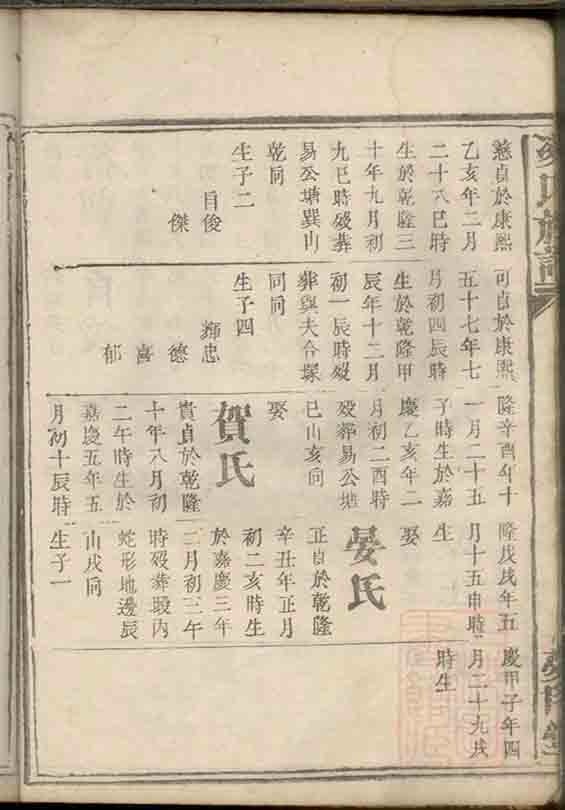 慈貞於康熙
乙亥年二月
二十八巳時
生於乾隆三
十年九月初
九巳時歿葬
易公塘巽山
乾向
生子二
自俊
傑
可貞於康熙
五十七年七
月初四辰時
生於乾隆甲
辰年十二月
初一辰時歿
葬與夫合塚
同向
生子四
輝忠
德
喜
郁
隆辛酉年十
一月二十五
子時生於嘉
慶乙亥年二
月初二酉時
歿葬易公塘
巳山亥向
娶
賀氏
貴貞於乾隆
十年八月初
二午時生於
嘉慶五年五
月初十辰時
隆戊戌年五
月十五申時
生
娶
晏氏
正貞於乾隆
辛丑年正月
初二亥時生
於嘉慶三年
二月初三午
時歿葬內
蛇形地邊辰
山戌向
生子一
慶甲子年四
月二十九戌
時生